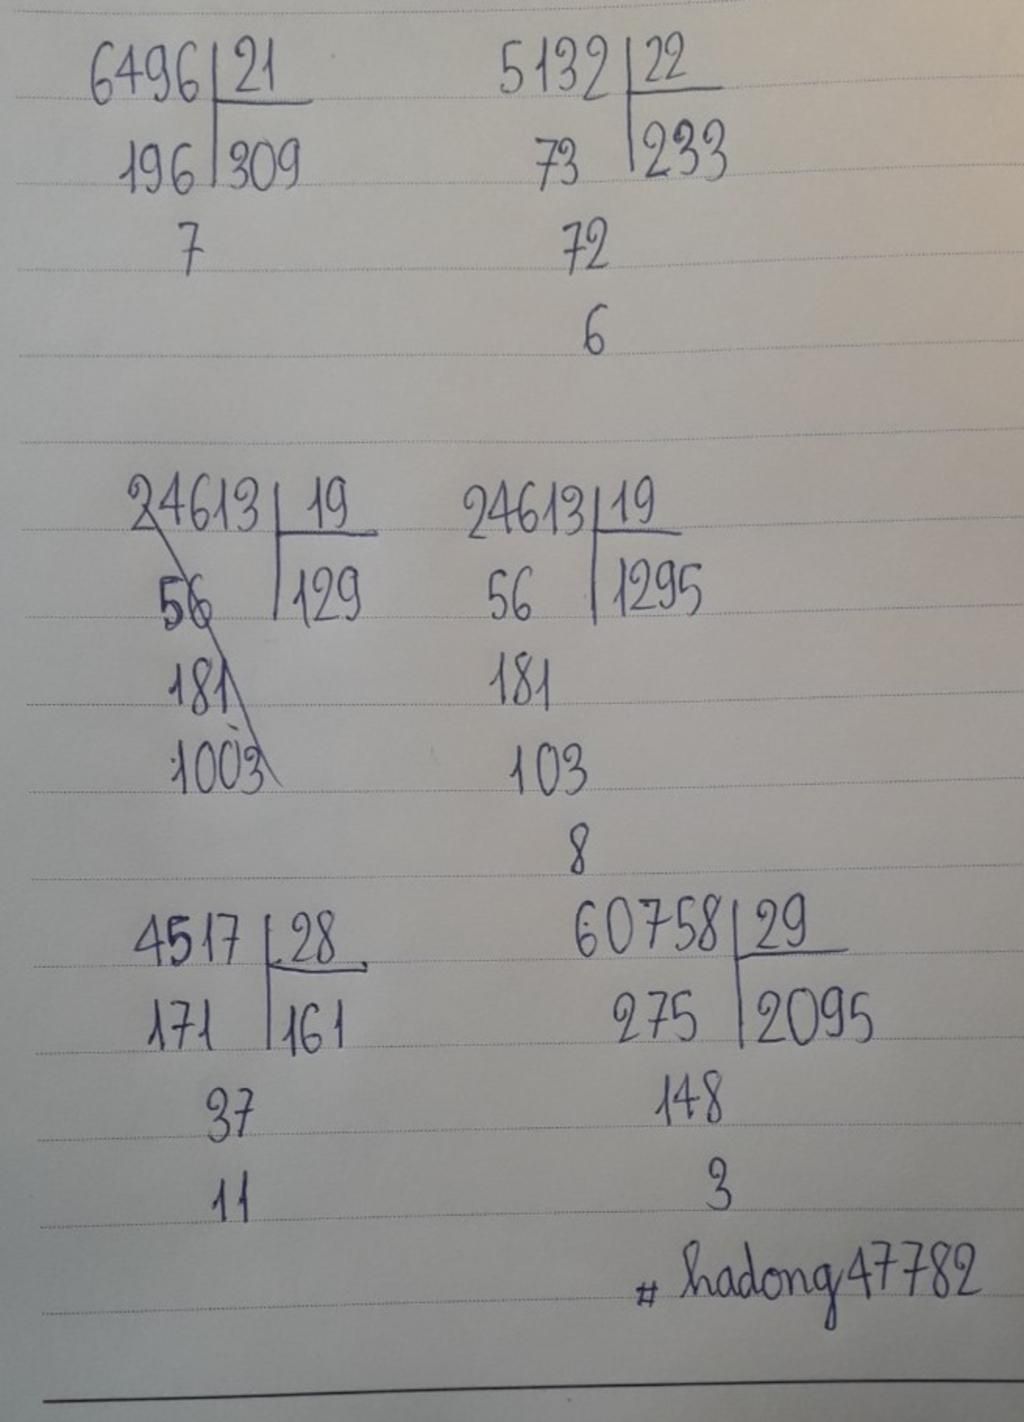 6496 21
196 309
7
5132 22
73 233
72
6
24613 19
56 129
181
1003
24613 19
56 1295
181
103
8
4517 28
171 161
37
11
60758 29
275 2095
148
3
# hadong47782